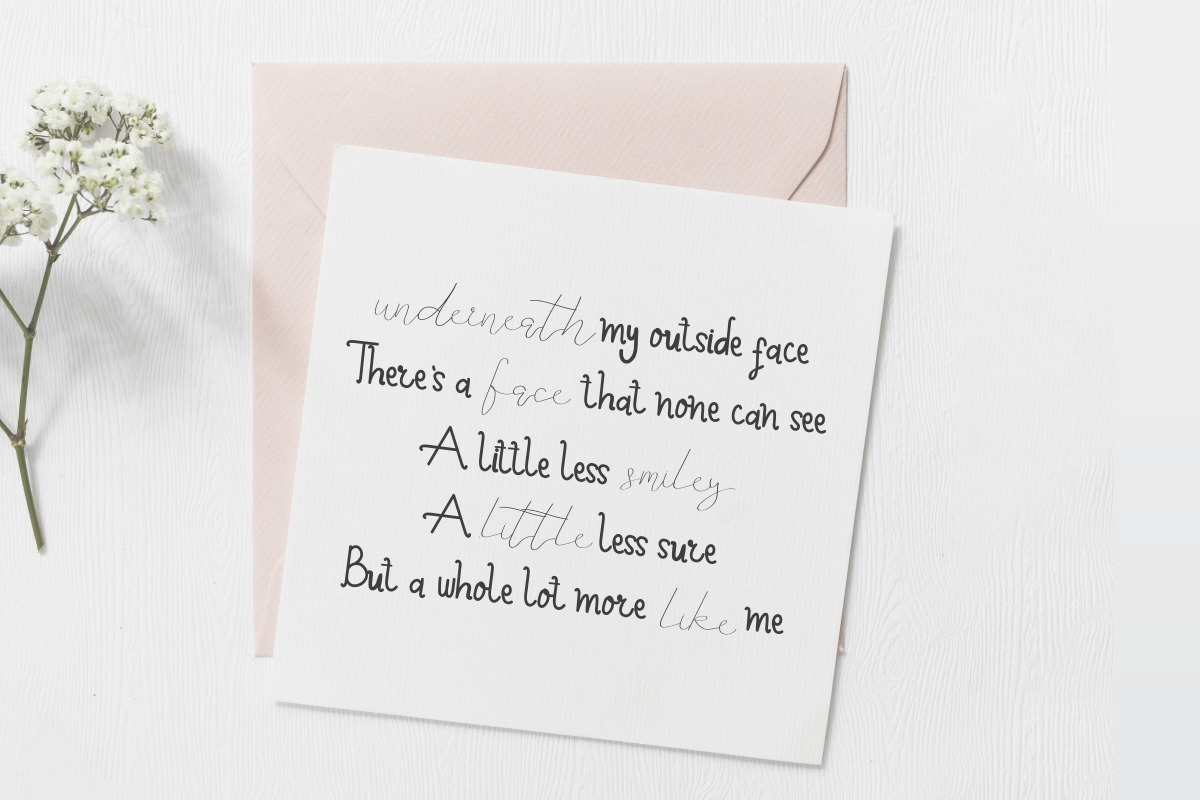 underneath my outside face
There's a face that none can see
A little less smiley
A little less sure
But a whole lot more like me